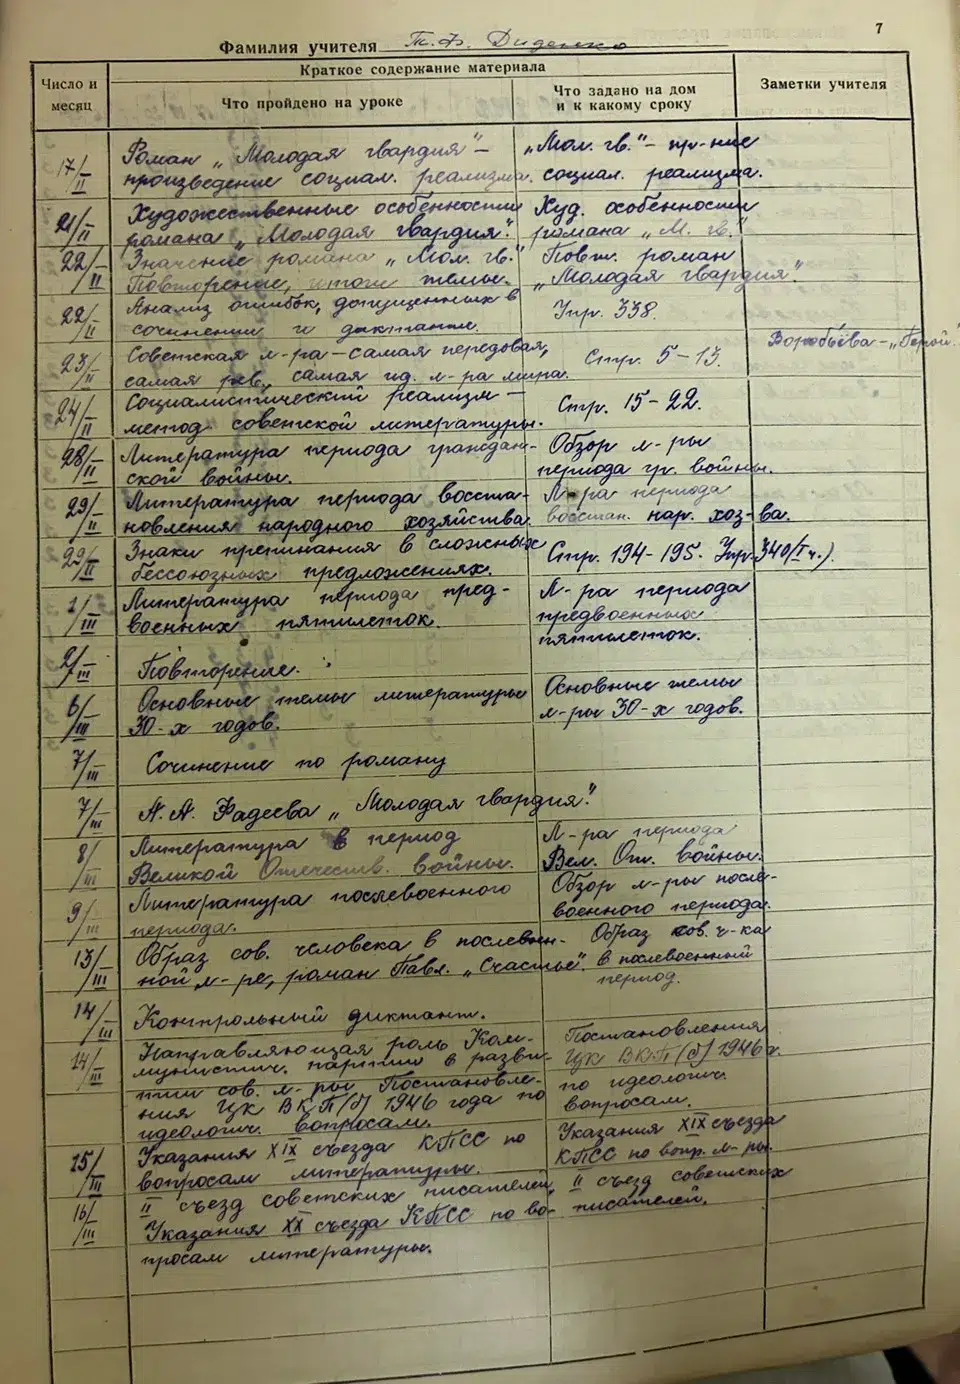 7
Фамилия учителя Т. Ф. Диденко
Число и месяц
Краткое содержание материала
Что пройдено на уроке
Что задано на дом и к какому сроку
Заметки учителя
17/II Роман „Молодая гвардия" – „Мол. гв." – пр-ние
произведение социал. реализма. социал. реализма.
21/II Художественные особенности Худ. особенности
романа „Молодая гвардия". романа „М. гв."
22/II Значение романа „Мол. гв." Повт. роман
Повторение, итоги темы. „Молодая гвардия".
22/II Анализ ошибок, допущенных в Упр. 338.
сочинении и диктанте.
23/II Советская л-ра – самая передовая, Стр. 5–13. Воробьёва – „Герой"
самая рев., самая ид. л-ра мира.
24/II Социалистический реализм – Стр. 15–22.
метод советской литературы.
28/II Литература периода граждан- Обзор л-ры
ской войны. периода гр. войны.
29/II Литература периода восста- Л-ра периода
новления народного хозяйства. восстан. нар. хоз-ва.
29/II Знаки препинания в сложных Стр. 194–195. Упр. 340/I ч.).
бессоюзных предложениях.
1/III Литература периода пред- Л-ра периода
военных пятилеток. предвоенных
пятилеток.
2/III Повторение.
6/III Основные темы литературы Основные темы
30-х годов. л-ры 30-х годов.
7/III Сочинение по роману
7/III А. А. Фадеева „Молодая гвардия".
8/III Литература в период Л-ра периода
Великой Отечеств. войны. Вел. От. войны.
9/III Литература послевоенного Обзор л-ры после-
периода. военного периода.
13/III Образ сов. человека в послевоен- Образ сов. ч-ка
ной л-ре, роман Павл. „Счастье". в послевоенный
период.
14/III Контрольный диктант.
14/III Направляющая роль Ком- Постановления
мунистич. партии в разви- ЦК ВКП/б/ 1946 г.
тии сов. л-ры Постановле- по идеологич.
ния ЦК ВКП/б/ 1946 года по вопросам.
идеологич. вопросам.
15/III Указания XIX съезда КПСС по Указания XIX съезда
вопросам литературы. КПСС по вопр. л-ры.
16/III II съезд советских писателей. II съезд советских
Указания XX съезда КПСС по во- писателей.
просам литературы.